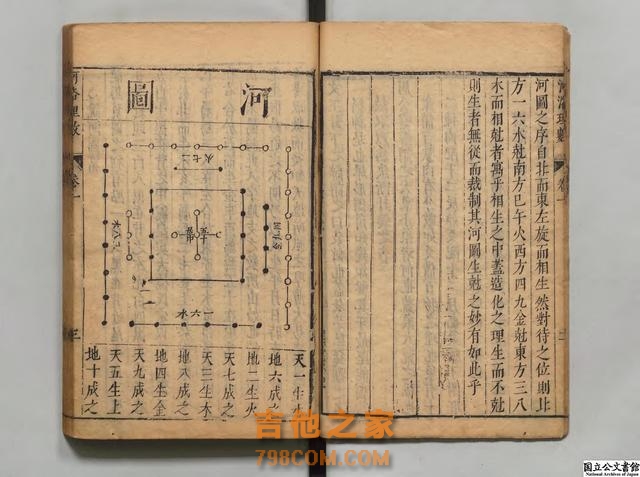 河圖之序自北而東左旋而相生然對待之位則北
方一六水尅南方巳午火西方四九金尅東方三八
木而相尅者寓乎相生之中蓋造化之理生而不尅
則生者無從而裁制其河圖生尅之妙有如此乎
河洛理數
卷一
河圖
火七二
木八三
一六水
天一生水
地六成之
地二生火
天七成之
天三生木
地八成之
地四生金
天九成之
天五生土
地十成之
河洛理數
卷一
三
吉他之家
798COM.COM
国立公文書館
National Archives of Japan